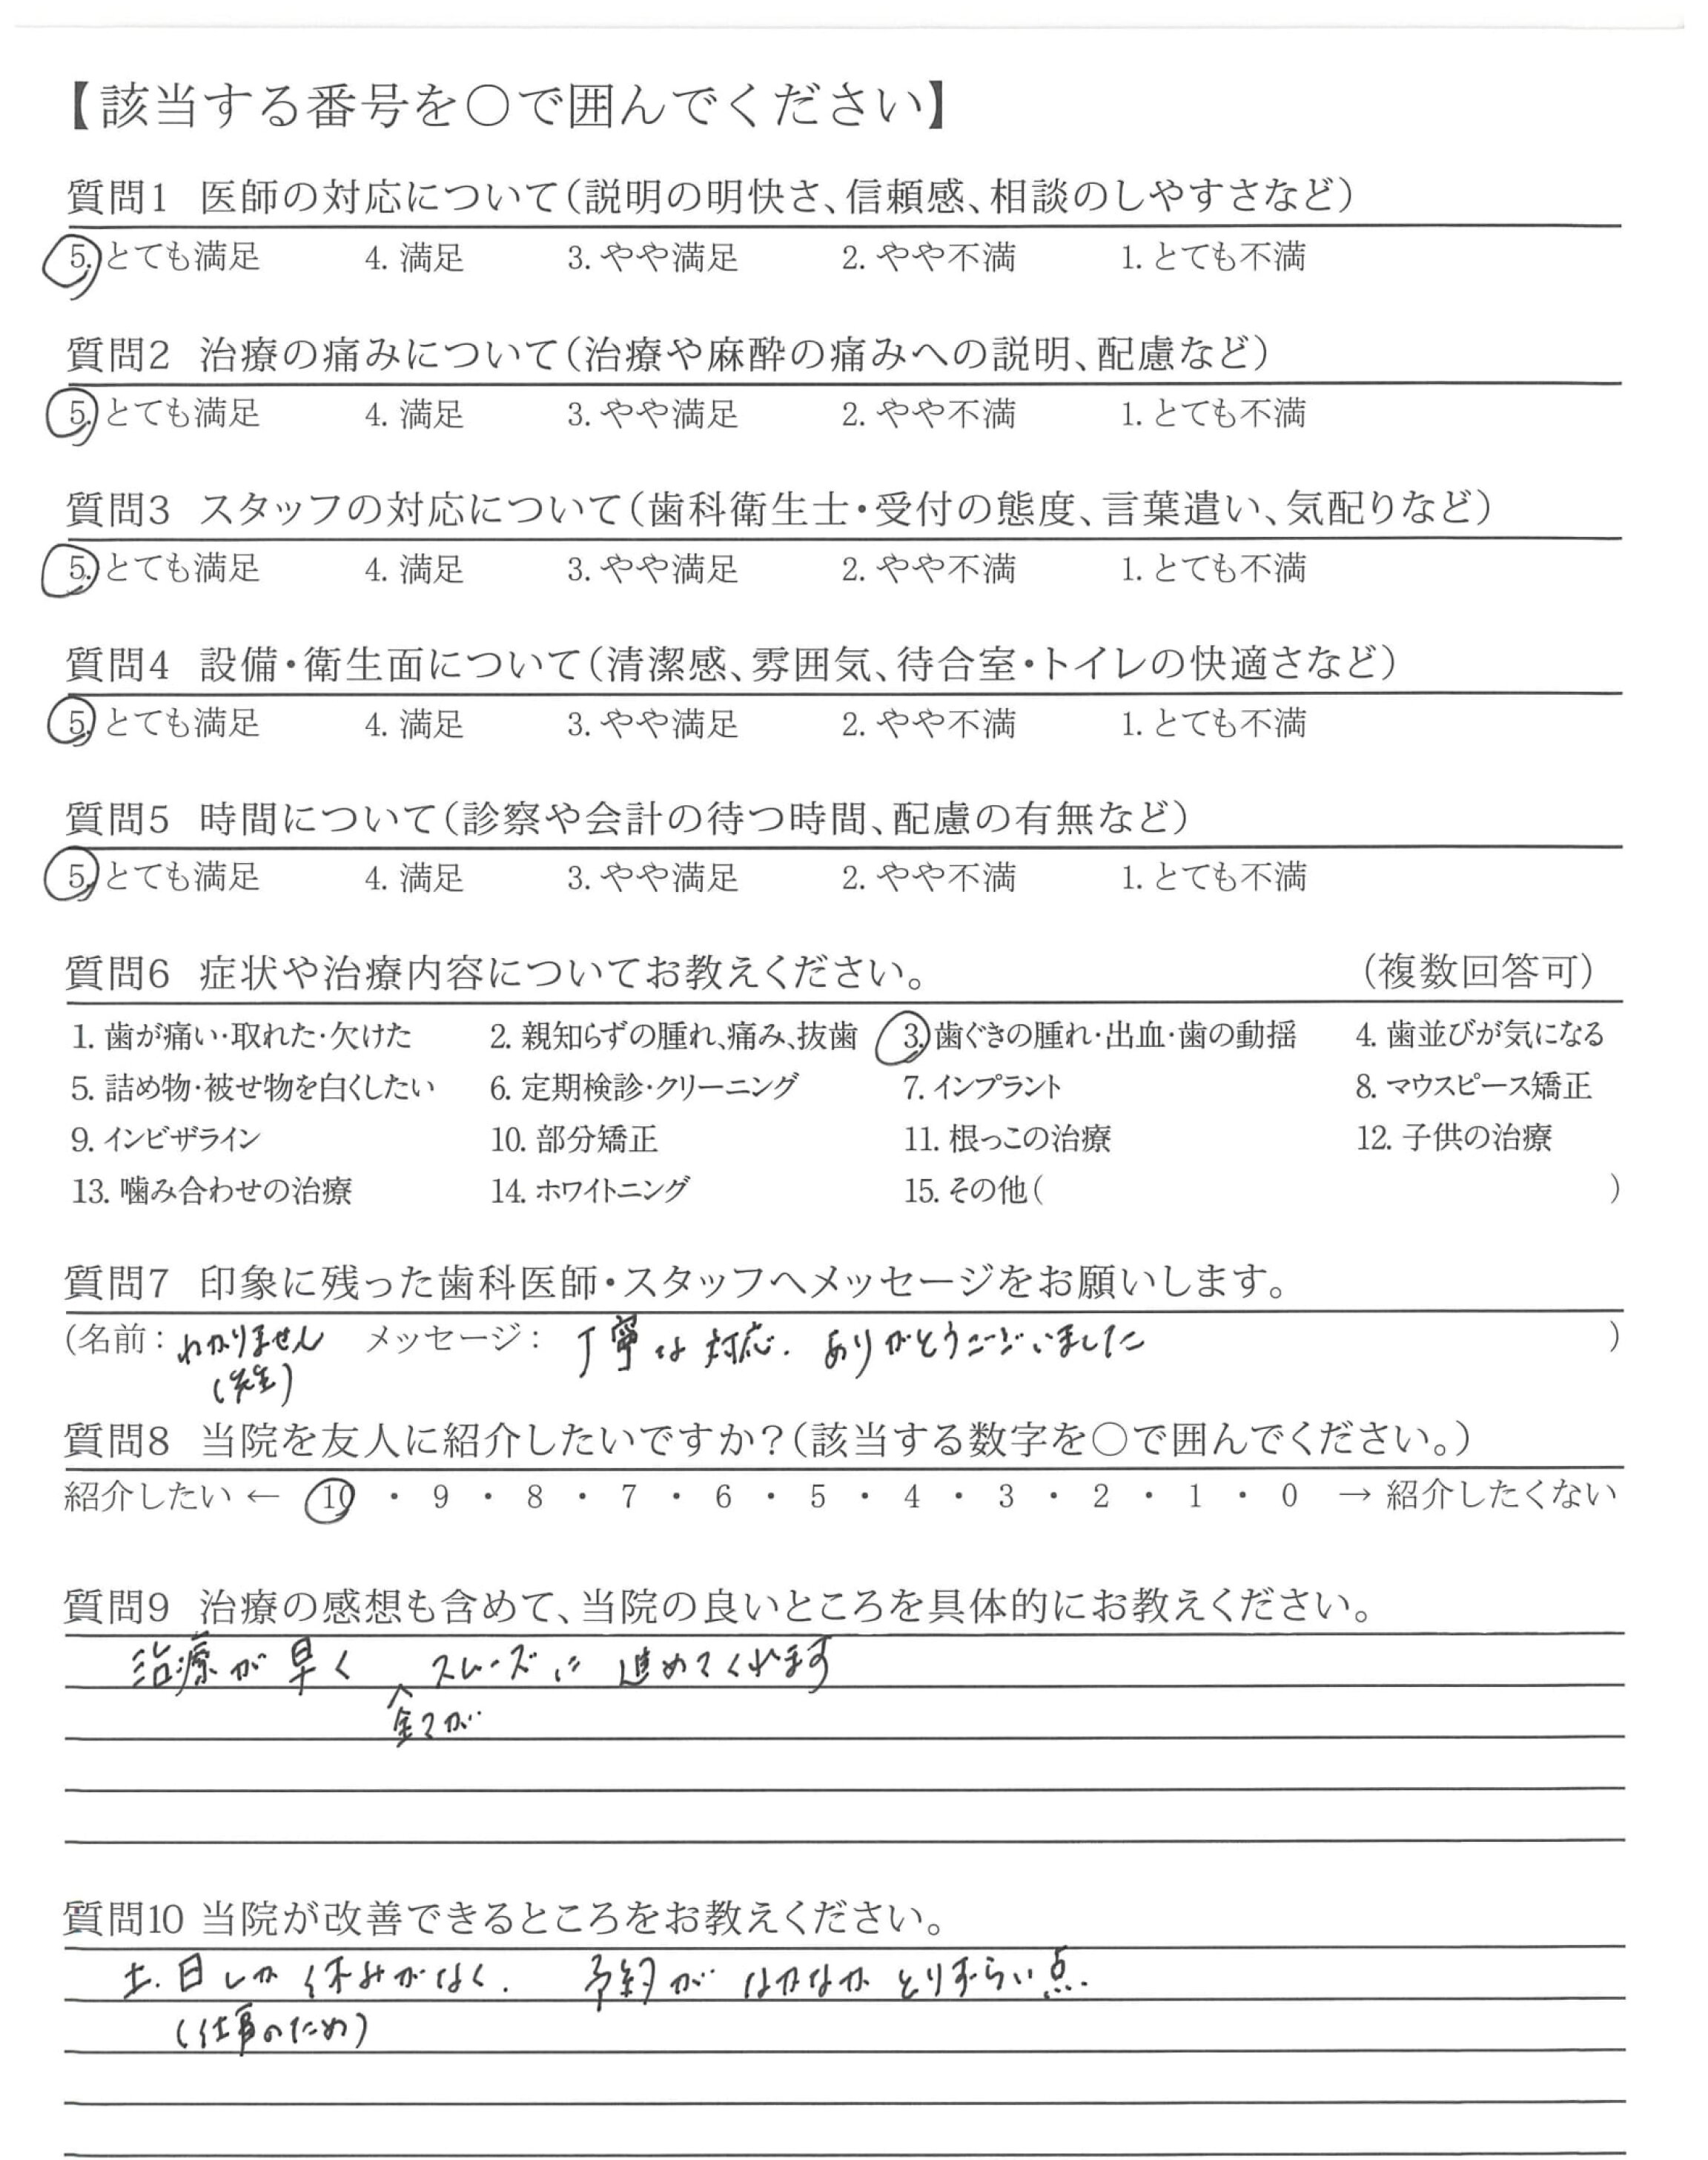 【該当する番号を○で囲んでください】
質問1 医師の対応について(説明の明快さ、信頼感、相談のしやすさなど)
5. とても満足 4. 満足 3. やや満足 2. やや不満 1. とても不満
質問2 治療の痛みについて(治療や麻酔の痛みへの説明、配慮など)
5. とても満足 4. 満足 3. やや満足 2. やや不満 1. とても不満
質問3 スタッフの対応について(歯科衛生士・受付の態度、言葉遣い、気配りなど)
5. とても満足 4. 満足 3. やや満足 2. やや不満 1. とても不満
質問4 設備・衛生面について(清潔感、雰囲気、待合室・トイレの快適さなど)
5. とても満足 4. 満足 3. やや満足 2. やや不満 1. とても不満
質問5 時間について(診察や会計の待つ時間、配慮の有無など)
5. とても満足 4. 満足 3. やや満足 2. やや不満 1. とても不満
質問6 症状や治療内容についてお教えください。 (複数回答可)
1. 歯が痛い・取れた・欠けた 2. 親知らずの腫れ、痛み、抜歯 3. 歯ぐきの腫れ・出血・歯の動揺 4. 歯並びが気になる
5. 詰め物・被せ物を白くしたい 6. 定期検診・クリーニング 7. インプラント 8. マウスピース矯正
9. インビザライン 10. 部分矯正 11. 根っこの治療 12. 子供の治療
13. 噛み合わせの治療 14. ホワイトニング 15. その他( )
質問7 印象に残った歯科医師・スタッフへメッセージをお願いします。
(名前: わかりません メッセージ: 丁寧な対応. ありがとうございました )
(先生)
質問8 当院を友人に紹介したいですか?(該当する数字を○で囲んでください。)
紹介したい ← 10 ・ 9 ・ 8 ・ 7 ・ 6 ・ 5 ・ 4 ・ 3 ・ 2 ・ 1 ・ 0 → 紹介したくない
質問9 治療の感想も含めて、当院の良いところを具体的にお教えください。
治療が早く スムーズに 進めてくれます
全てが
質問10 当院が改善できるところをお教えください。
土.日しか休みがなく. 予約が なかなか とりずらい点.
(仕事のため)